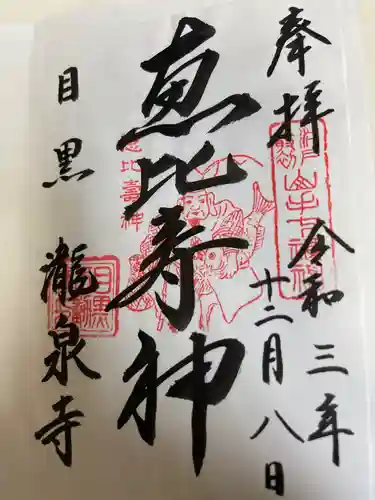 奉拝
令和三年
十二月八日
恵比寿神
恵比壽神
目黒
瀧泉寺